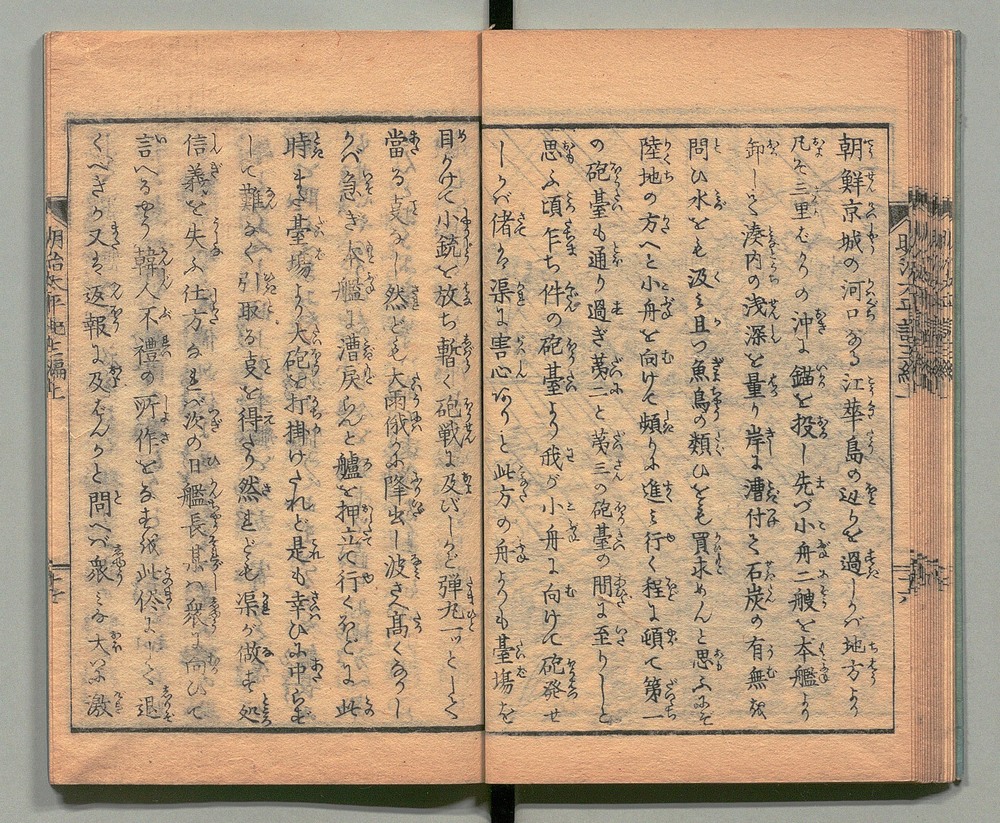 朝鮮京城の河口なる江華島の辺りを過しかバ地方より
凡そ三里ばかりの沖に錨を投し先づ小舟二艘を本艦より
卸して湊内の浅深を量り岸に漕付て石炭の有無を
問ひ水をも汲ミ且つ魚鳥の類ひをも買求めんと思ふにぞ
陸地の方へと小舟を向けて頻りに進ミ行く程に頓て第一
の砲䑓も通り過ぎ苐二と苐三の砲䑓の間に至りしと
思ふ頃乍ち件の砲䑓より我が小舟に向けて砲発せ
しかバ偖ハ渠に害心ありと此方の舟よりも䑓塲を
目がけて小銃を放ち暫く砲戦に及びしかど弾丸一ツとして
當る事なし然とも大雨俄に降出し波さへ高くなりし
かバ急ぎ本艦に漕戻らんと艫を押立て行くほどに此
時また䑓塲より大砲を打掛けたれと是も幸ひに中らず
して難なく引取る事を得たり然れとも渠が做す処
信義を失ふ仕方なれバ次の日艦長其ハ衆に向ひて
言へるやう韓人不禮の所作をなす紙此侭にして退
くべきか又は返報に及ばんかと問へバ衆ミな大いに激
明治太平記十二編上